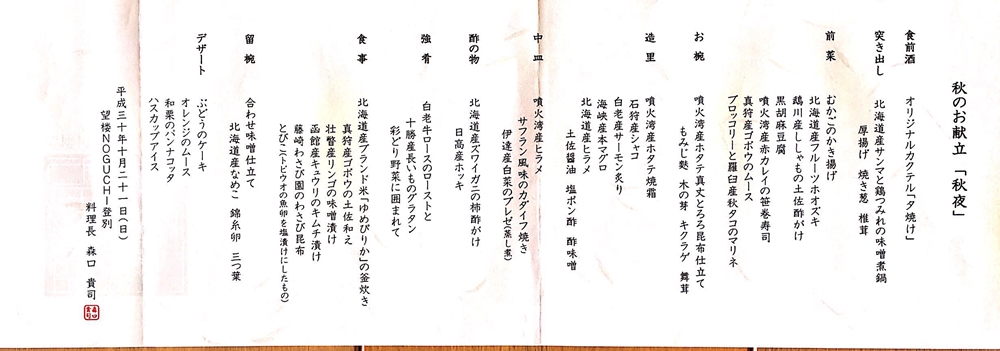 秋のお献立 「秋夜」
食前酒
オリジナルカクテル「夕焼け」
突き出し
北海道産サンマと鶏つみれの味噌煮鍋
厚揚げ 焼き葱 椎茸
前菜
むかごのかき揚げ
北海道産フルーツホオズキ
鵡川産ししゃもの土佐酢がけ
黒胡麻豆腐
噴火湾産赤カレイの笹巻寿司
真狩産ゴボウのムース
ブロッコリーと羅臼産秋タコのマリネ
お椀
噴火湾産ホタテ真丈とろろ昆布仕立て
もみじ麩 木の芽 キクラゲ 舞茸
造里
噴火湾産ホタテ焼霜
石狩産シャコ
白老産サーモン炙り
海峡産本マグロ
北海道産ヒラメ
土佐醤油 塩ポン酢 酢味噌
中皿
噴火湾産ヒラメ
サフラン風味のカダイフ焼き
伊達産白菜のブレゼ(蒸し煮)
酢の物
北海道産ズワイガニの柿酢がけ
日高産ホッキ
強肴
白老牛ロースのローストと
十勝産長いものグラタン
彩どり野菜に囲まれて
食事
北海道産ブランド米「ゆめぴりか」の釜炊き
真狩産ゴボウの土佐和え
壮瞥産リンゴの味噌漬け
函館産キュウリのキムチ漬け
藤崎わさび園のわさび昆布
とびこ(トビウオの魚卵を塩漬けにしたもの)
留椀
合わせ味噌仕立て
北海道産なめこ 錦糸卵 三つ葉
デザート
ぶどうのケーキ
オレンジのムース
和栗のパンナコッタ
ハスカップアイス
平成三十年十月二十一日(日)
望楼NOGUCHI登別
料理長 森口 貴司